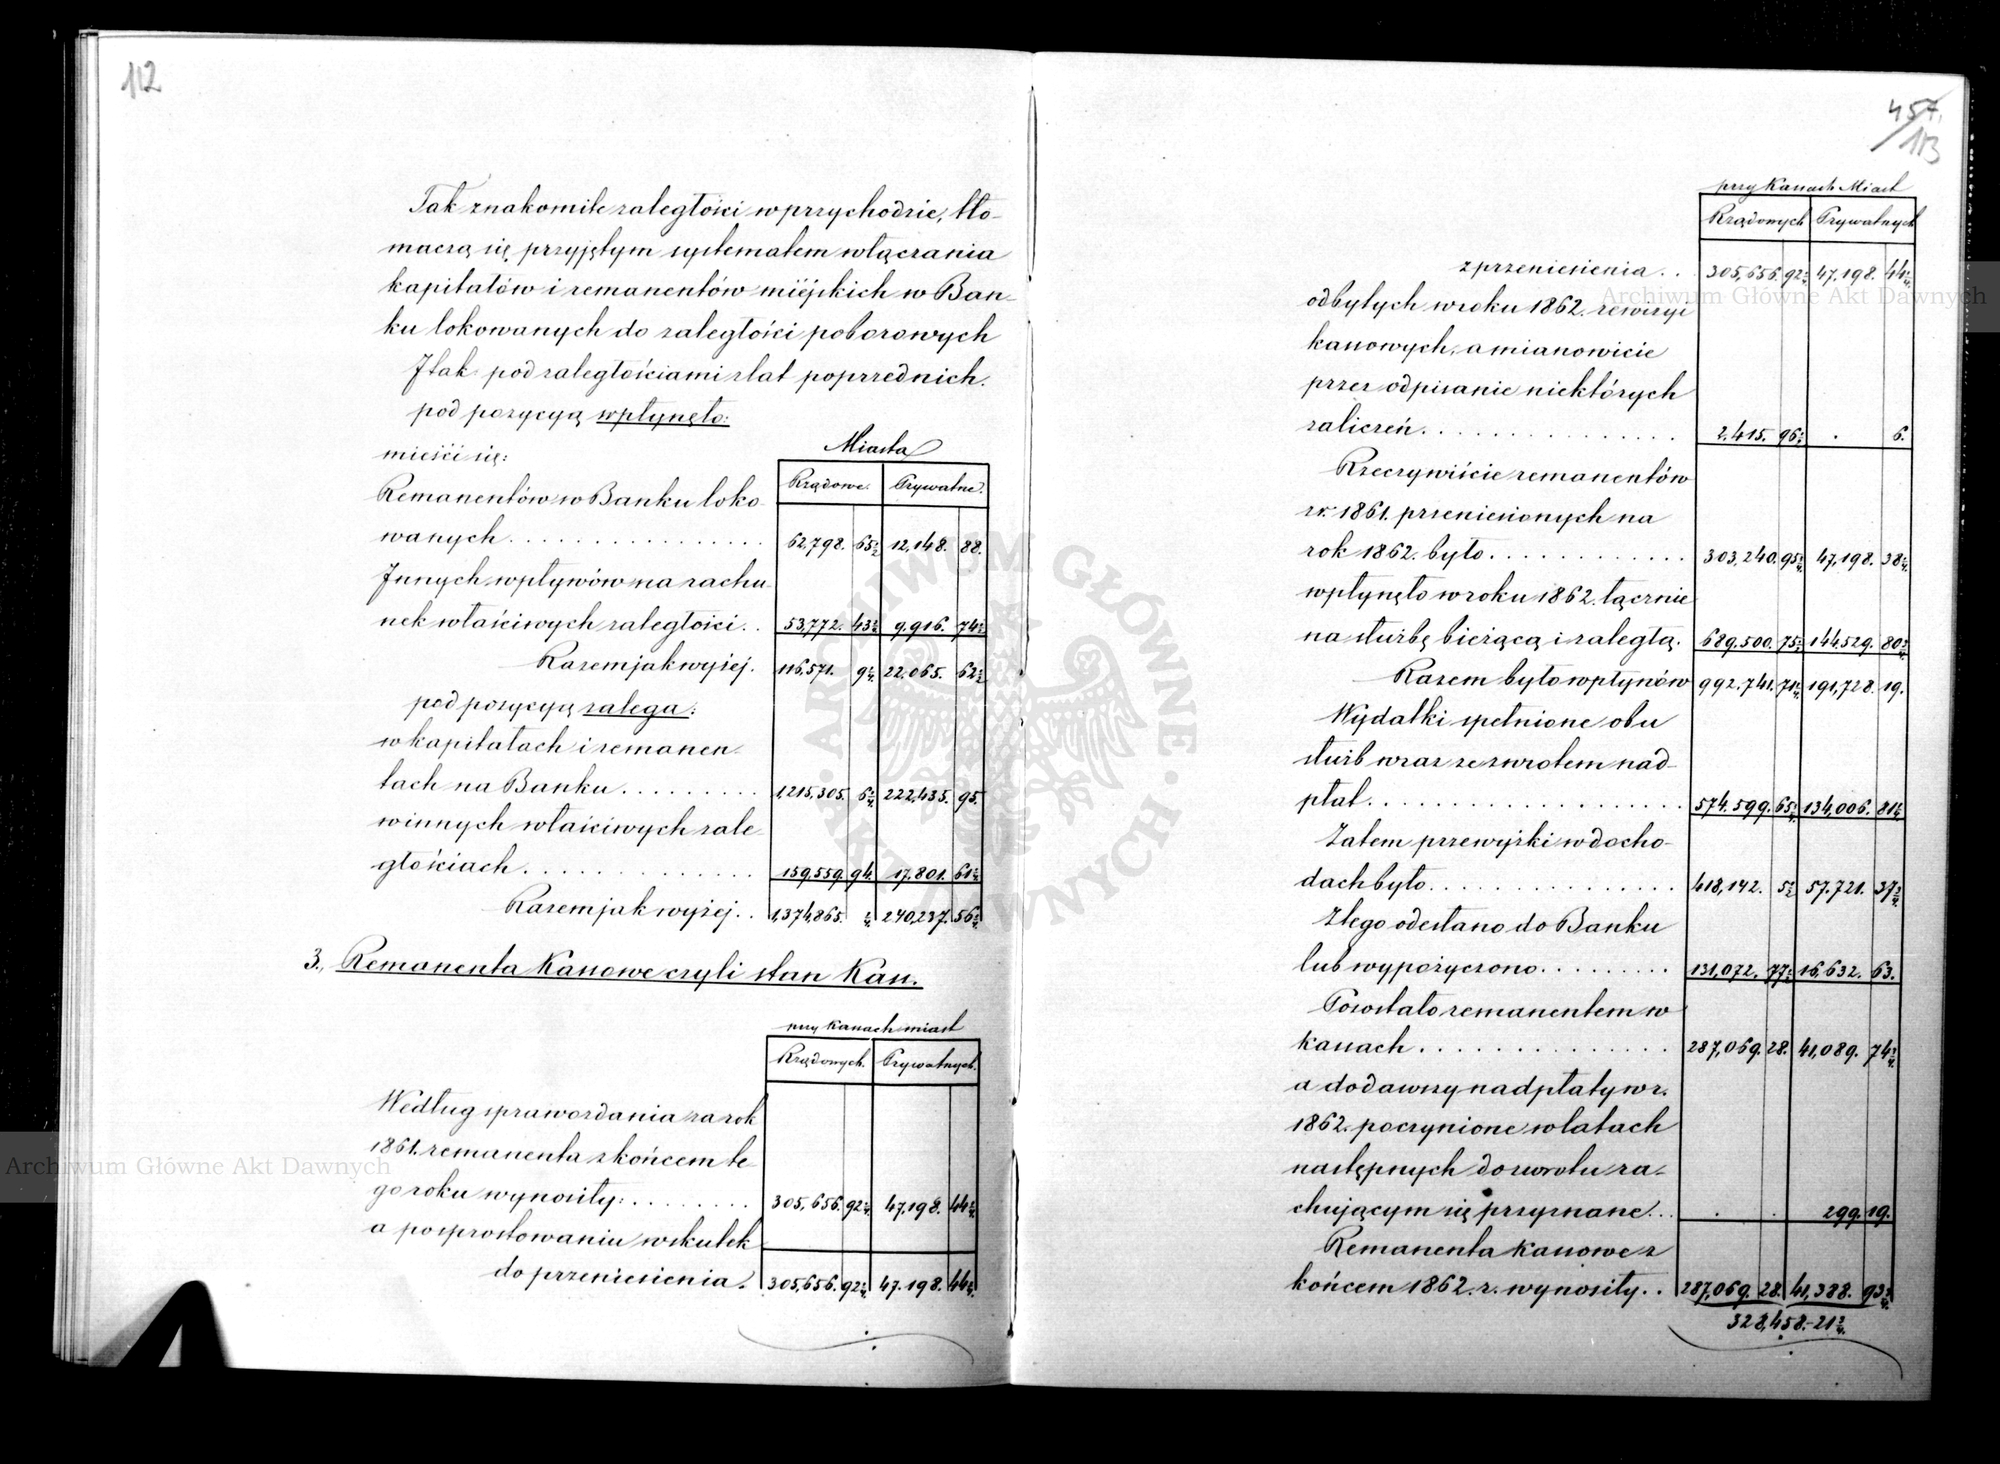 112
Tak znakomite zaległości w przychodzie, tło-
maczą się przyjętym systematem włączania
kapitałów i remanentów miéjskich w Ban-
ku lokowanych do zaległości poborowych
I tak pod zaległościami z lat poprzednich.
pod pozycyą wpłynęło:
mieści się:
Miasta
Rządowe. Prywatne.
Remanentów w Banku loko
wanych . . . . . 62,798. 65 2/4 12,148. 88.
Innych wpływów na rachu-
nek właściwych zaległości . . 53,772. 43 3/4 9.916. 74 2/4
Razem jak wyżej. 116,571. 9 1/4 22.065. 62 2/4
pod pozycyą zalega:
w kapitałach i remanen-
tach na Banku . . . . . 1,215,305. 6 1/4 222,435. 95.
w innych właściwych zale-
głościach . . . . . 159,559. 94. 17.801. 61 1/4
Razem jak wyżej . . 1,374,865. 1/4 240,237. 56 1/4
3., Remanenta Kassowe czyli stan Kass.
przy kassach miast
Rządowych. Prywatnych.
Według sprawozdania za rok
1861. remanenta z końcem te-
go roku wynosiły: . . . . . 305,656. 92 1/4 47,198. 44 2/4
a po sprostowaniu w skutek
do przeniesienia . 305,656. 92 1/4 47.198. 44 2/4
457.
113
przy Kassach Miast
Rządowych Prywatnych
z przeniesienia . . 305,656. 92 1/4 47,198. 44 2/4
odbytych w roku 1862. rewizyi
kassowych, a mianowicie
przez odpisanie niektórych
zaliczeń . . . . . 2.415. 96 2/4 . 6.
Rzeczywiście remanentów
z r. 1861. przeniesionych na
rok 1862. było . . . . . 303,240. 95 3/4 47,198. 38 2/4
wpłynęło w roku 1862. łącznie
na służbę bieżącą i zaległą. 689.500. 75 2/4 144.529. 80 2/4
Razem było wpływów 992.741. 71 1/4 191,728. 19.
Wydatki spełnione obu
służb wraz ze zwrotem nad-
płat . . . . . 574.599. 65 3/4 134,006. 81 1/4
Zatem przewyżki w docho-
dach było . . . . . 418,142. 5 2/4 57.721. 37 3/4
Z tego odesłano do Banku
lub wypożyczono . . . . . 131,072. 77 2/4 16,632. 63.
Pozostało remanentem w
kassach . . . . . 287,069. 28. 41,089. 74 3/4
a dodawszy nadpłaty w r.
1862. poczynione w latach
następnych do zwrotu ra-
chującym się przyznane . . . . . 299. 19.
Remanenta kassowe z
końcem 1862. r. wynosiły . . 287,069. 28. 41,388. 93 3/4
328,458.-21 3/4
ARCHIWUM GŁÓWNE AKT DAWNYCH
Archiwum Główne Akt Dawnych
Archiwum Główne Akt Dawnych